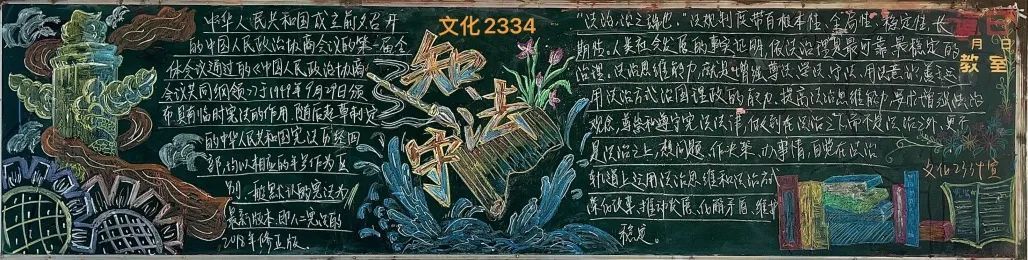 中华人民共和国成立前夕召开
的中国人民政治协商会议的第一届全
体会议通过的《中国人民政治协商
会议共同纲领》于1949年9月29日颁
布具有临时宪法的作用,随后起草制定
的中华人民共和国宪法历经四
部,均以相应的年号作为区
别,一般默认的宪法为
最新版本,即八二宪法的
2018年修正版。
文化2334
知法
守
"法治,治之
法规制度带有根本性、全局性、稳定性、长
期性。人类社会发展的事实证明,依法治理是最可靠、最稳定的
治理。法治思维能力,就是增强尊法学法守法、用法意识,善于运
用法治方式治国理政的能力。提高法治思维能力,要求增强法治
观念,尊崇和遵守宪法法律,做到在法治之下,而不是法治之外、更不
是法治之上,想问题、作决策、办事情,自觉在法治
轨道上运用法治思维和法治方式
深化改革、推动发展、化解矛盾、维护
稳定。
月 日
教室
文化23计宣